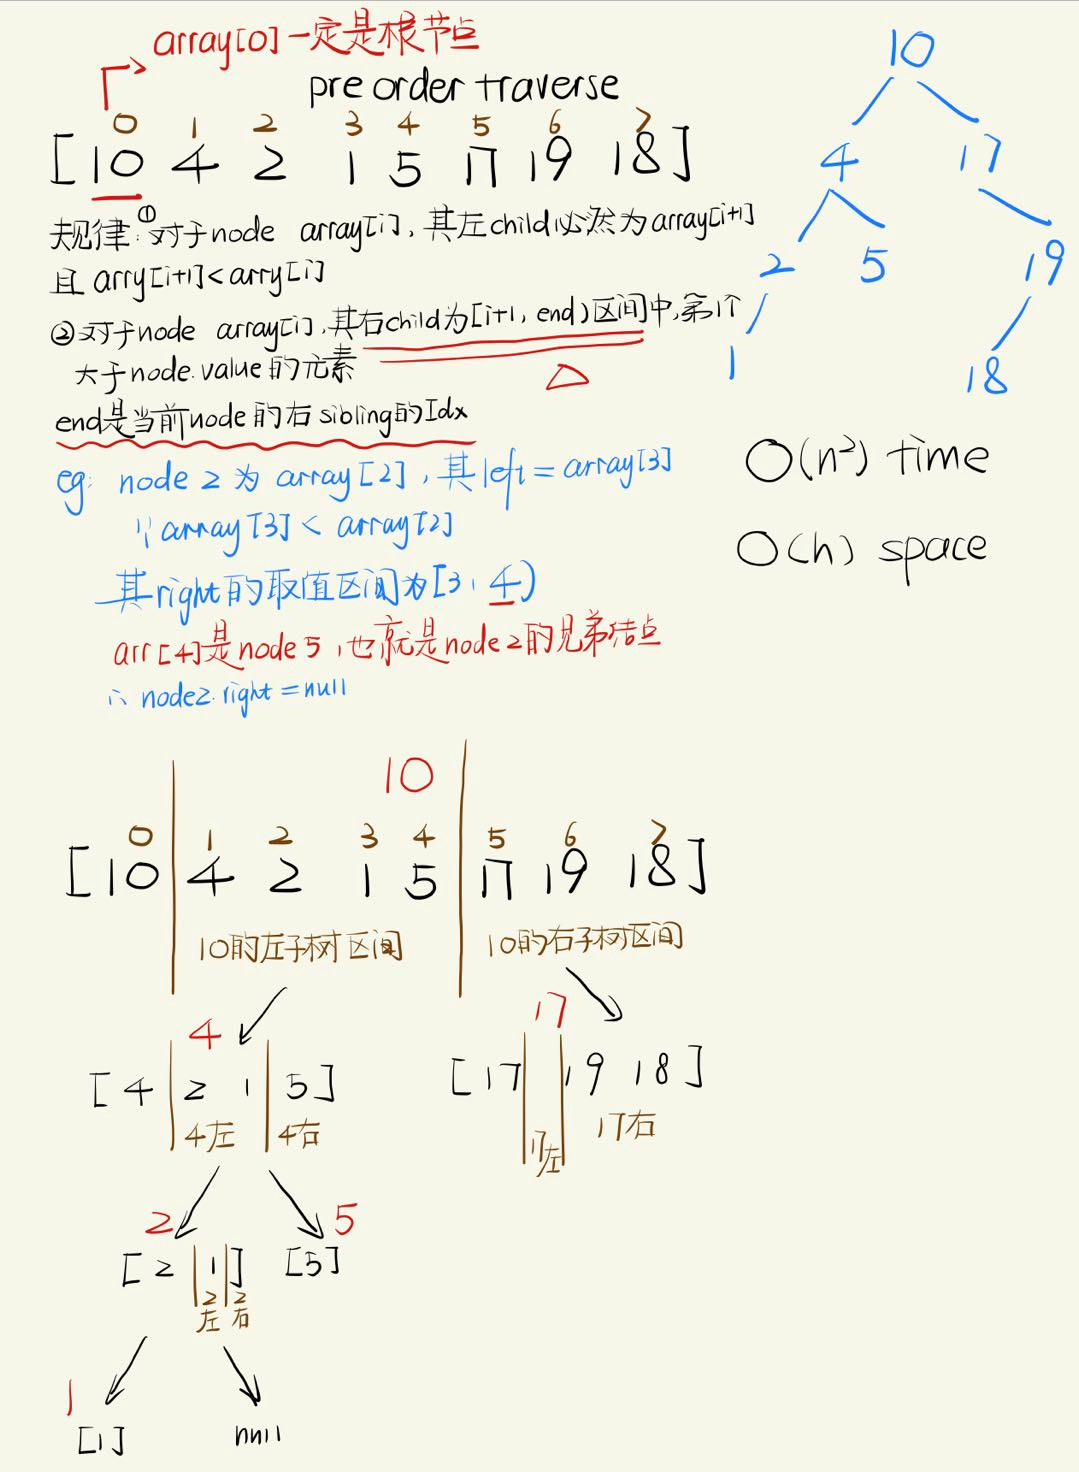 array[0]一定是根节点
pre order traverse
0 1 2 3 4 5 6 7
[10 4 2 1 5 17 19 18]
规律:①对于node array[i],其左child必然为array[i+1]
且 arry[i+1]<arry[i]
②对于node array[i],其右child为[i+1, end)区间中,第1个
大于node.value的元素
end是当前node的右sibling的Idx
eg: node 2 为 array[2],其left = array[3]
∵ array[3] < array[2]
其right的取值区间为[3,4)
arr[4]是node 5,也就是node 2的兄弟结点
∴ node2.right = null
10
4 17
2 5 19
1 18
O(n²) time
O(h) space
10
0 1 2 3 4 5 6 7
[10 4 2 1 5 17 19 18]
10的左子树区间 10的右子树区间
4 17
[4 2 1 5] [17 19 18]
4左 4右 17左 17右
2 5
[2 1] [5]
2左 2右
1
[1] null